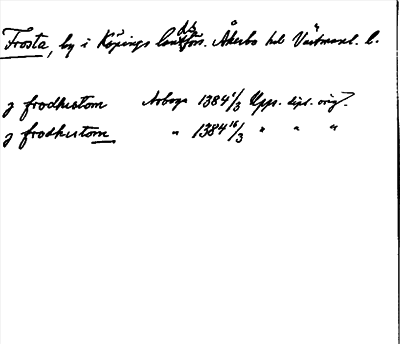 Frosta, by i Köpings landsförs. Åkerbo hd Västmanl. l.
j frodhastom Arboga 1384 1/3 Upps. dipl. orig.
j frodhustom " 1384 16/3 " " "